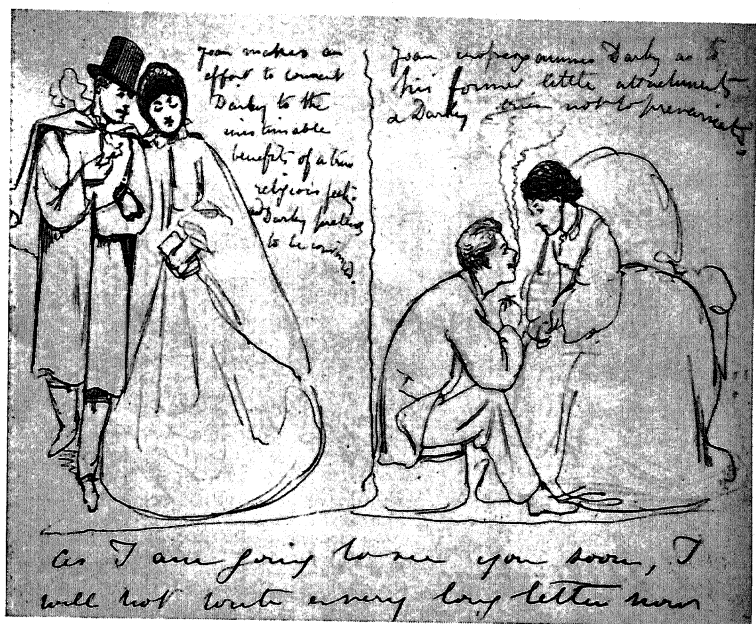 Joan makes an
effort to convert
Darby to the
inestimable
benefits of a true
religious feel:
& Darby pretends
to be convinced.
Joan cross-examines Darby as to
his former little attachments
& Darby tries not to prevaricate.
As I am going to see you soon, I
will not write a very long letter now